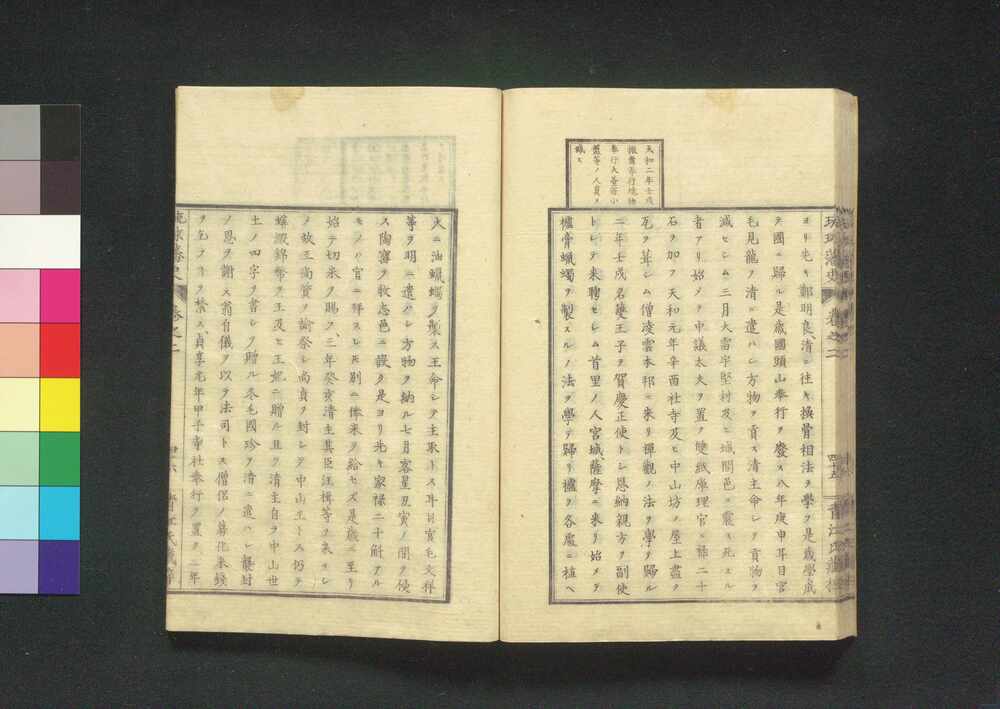 琉球藩史
卷之二
四十五
青江氏藏梓
ヨリ先キ鄭明良清ニ往キ換骨相法ヲ學ク是歳學成
テ國ニ歸ル是歳國頭山奉行ヲ廢ス八年庚申耳目官
毛見龍ヲ清ニ遣ハシ方物ヲ貢ス清主命シテ貢物ヲ
減セシム三月大雷宇堅村及ヒ城間邑ニ震ス死スル
者アリ始メテ中議大夫ヲ置ク雙紙庫理官ニ祿二十
石ヲ加フ天和元年辛酉社寺及ヒ中山坊ノ屋上盡ク
瓦ヲ葺シム僧凌雲本邦ニ來リ禪觀ノ法ヲ學ヒ歸ル
二年壬戌名護王子ヲ賀慶正使トシ恩納親方ヲ副使
トシテ來聘セシム首里ノ人宮城薩摩ニ來リ始メテ
櫨骨蠟燭ヲ製スルノ法ヲ學テ歸リ櫨ヲ各處ニ植ヘ
天和二年壬戌
奉行大臺所小
等ノ人員ヲ
大ニ油蠟燭ヲ製ス王命シテ主取トス耳目官毛文祥
等ヲ明ニ遣ハシ方物ヲ納ル七月客星丑寅ノ間ヲ侵
ス陶窰ヲ牧志邑ニ設ク是ヨリ先キ家祿二十斛アル
モノハ官ニ拜スレ𪜈別ニ俸米ヲ給セズ是歳ニ至リ
始テ切米ヲ賜フ三年癸亥清主其臣汪楫等ヲ來シ
メ故王尚質ヲ諭祭シ尚貞ヲ封シテ中山王トス仍テ
蟒緞錦幣ヲ王及ヒ王妃ニ贈ル且ツ清主自ラ中山世
土ノ四字ヲ書シテ贈ル冬毛國珍ヲ清ニ遣ハシ襲封
ノ恩ヲ謝ス翁自儀ヲ以テ法司トス僧侶ノ募化米錢
ヲ乞フコヲ禁ス貞享元年甲子寺社奉行ヲ置ク二年
琉球藩史
卷之二
四十六
青江氏藏梓